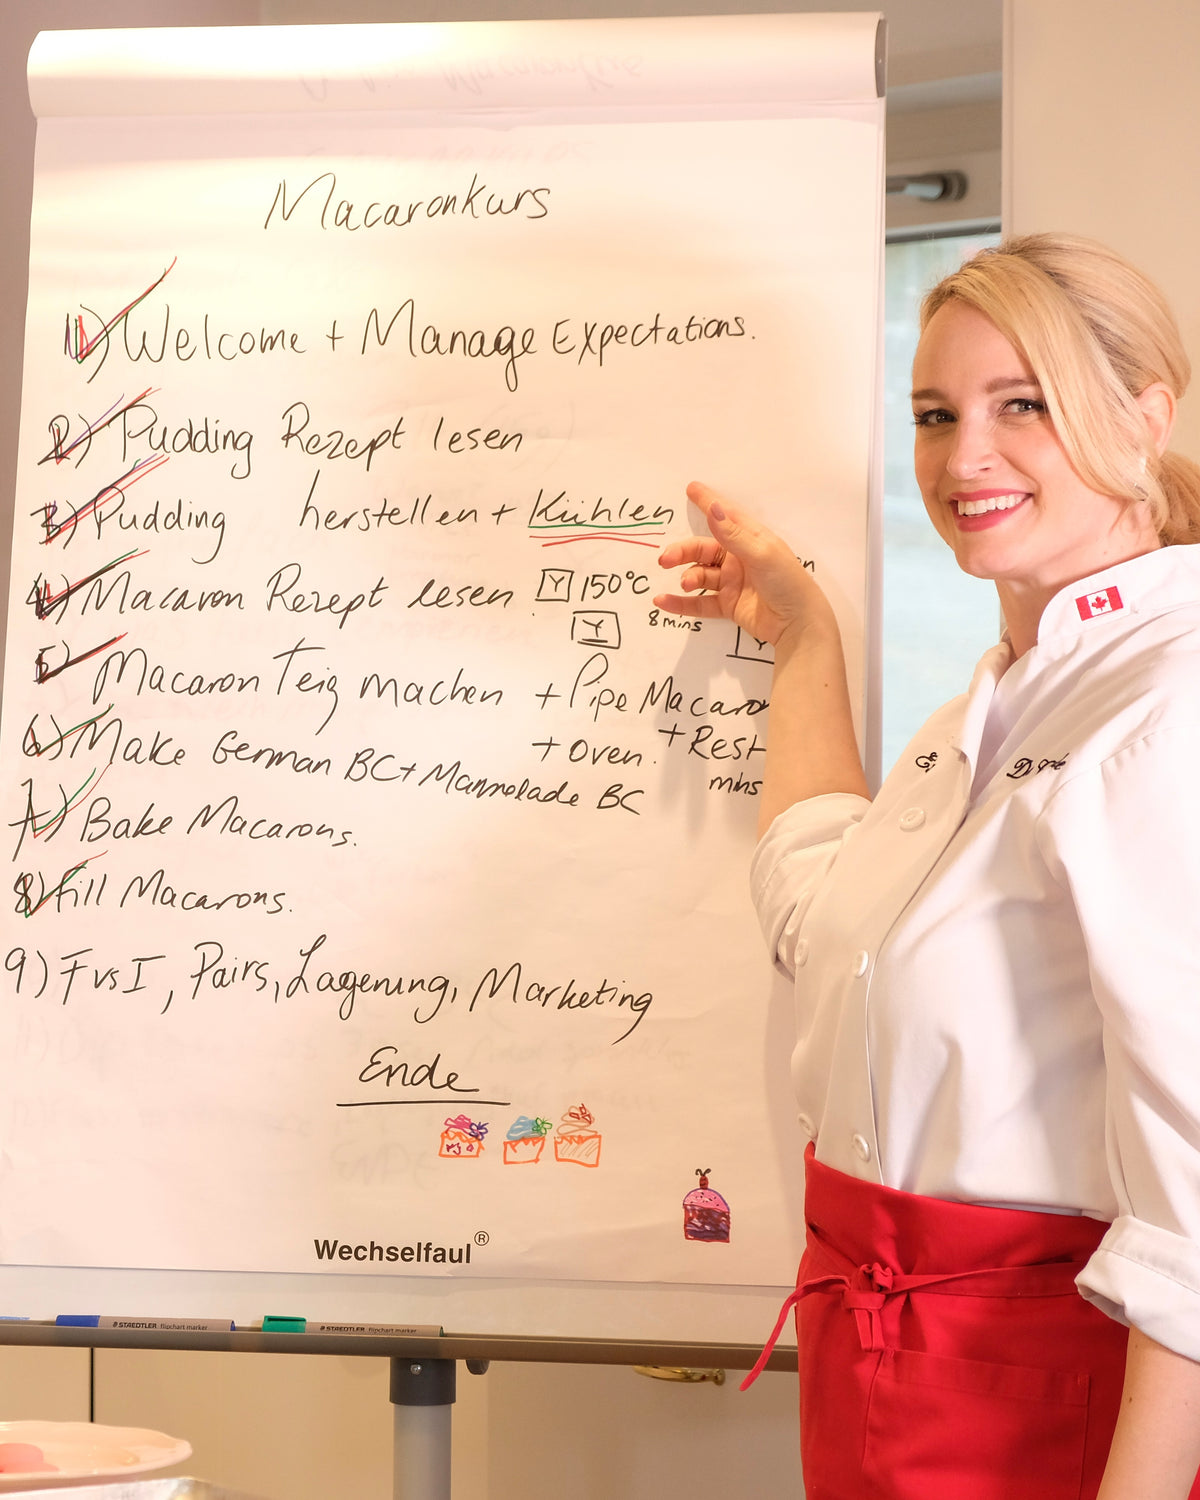 Macaronkurs
1) Welcome + Manage Expectations.
2) Pudding Rezept lesen
3) Pudding herstellen + Kühlen
4) Macaron Rezept lesen Y 150°C
Y 8 mins
5) Macaron Teig machen + Pipe Macaro
+ Oven. + Rest
mins
6) Make German BC + Marmelade BC
7) Bake Macarons.
8) Fill Macarons.
9) F vs I, Pairs, Lagerung, Marketing
Ende
Wechselfaul®
STAEDTLER flipchart marker
STAEDTLER flipchart marker